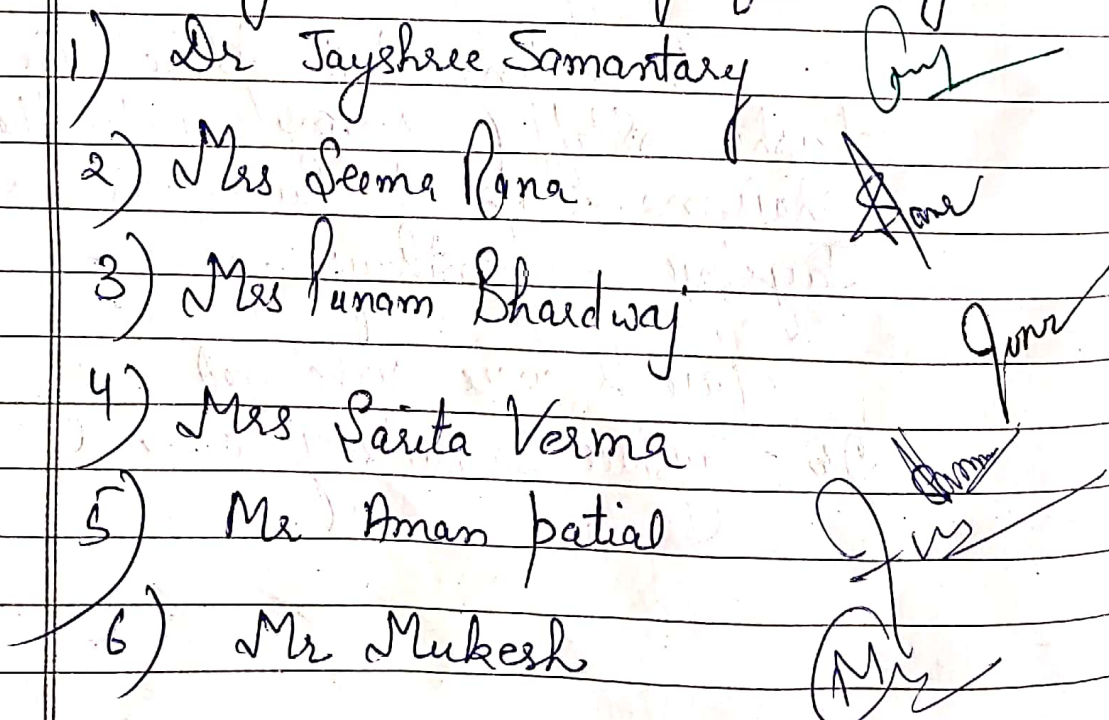 1) Dr Jayshree Samantary
2) Mrs Seema Rana
3) Mrs Punam Bhardwaj
4) Mrs Sarita Verma
5) Mr Aman patial
6) Mr Mukesh